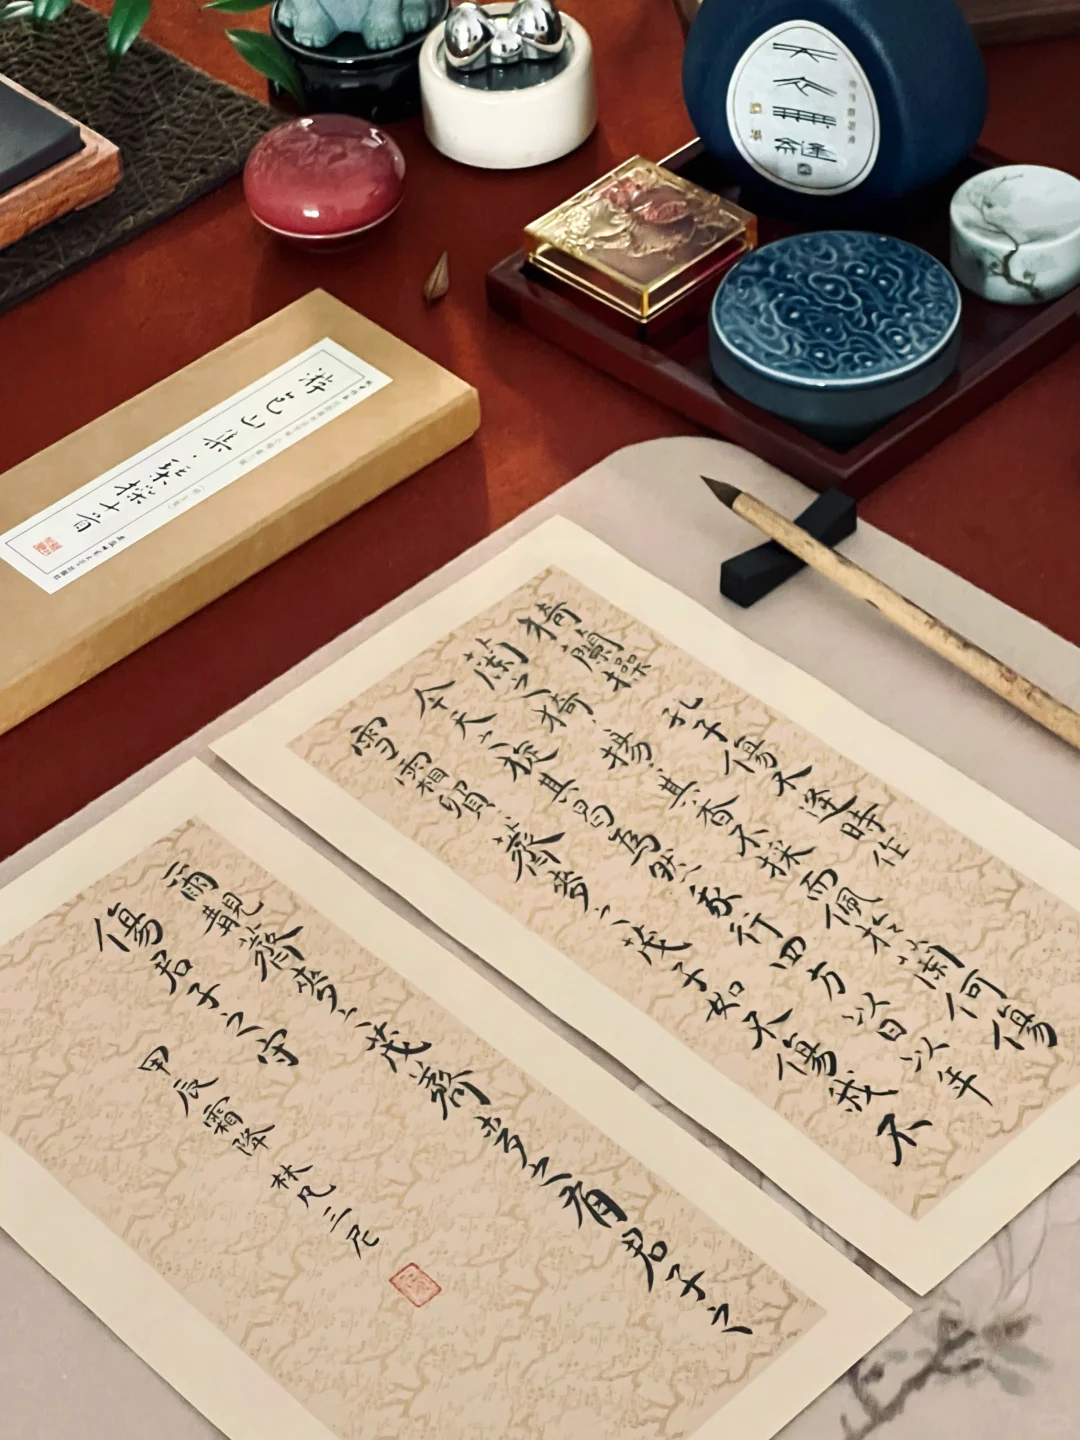 天衣無縫
山集·琴操十首
猗蘭操 孔子傷不逢時作
蘭之猗〻揚〻其香不採而佩於蘭何傷
今天之旋其曷為然我行四方以日以年
雪霜貿〻薺麥之茂子如不傷我不
爾覯薺麥之茂薺麥之有君子之
傷君子之守
甲辰霜降 梵三尼